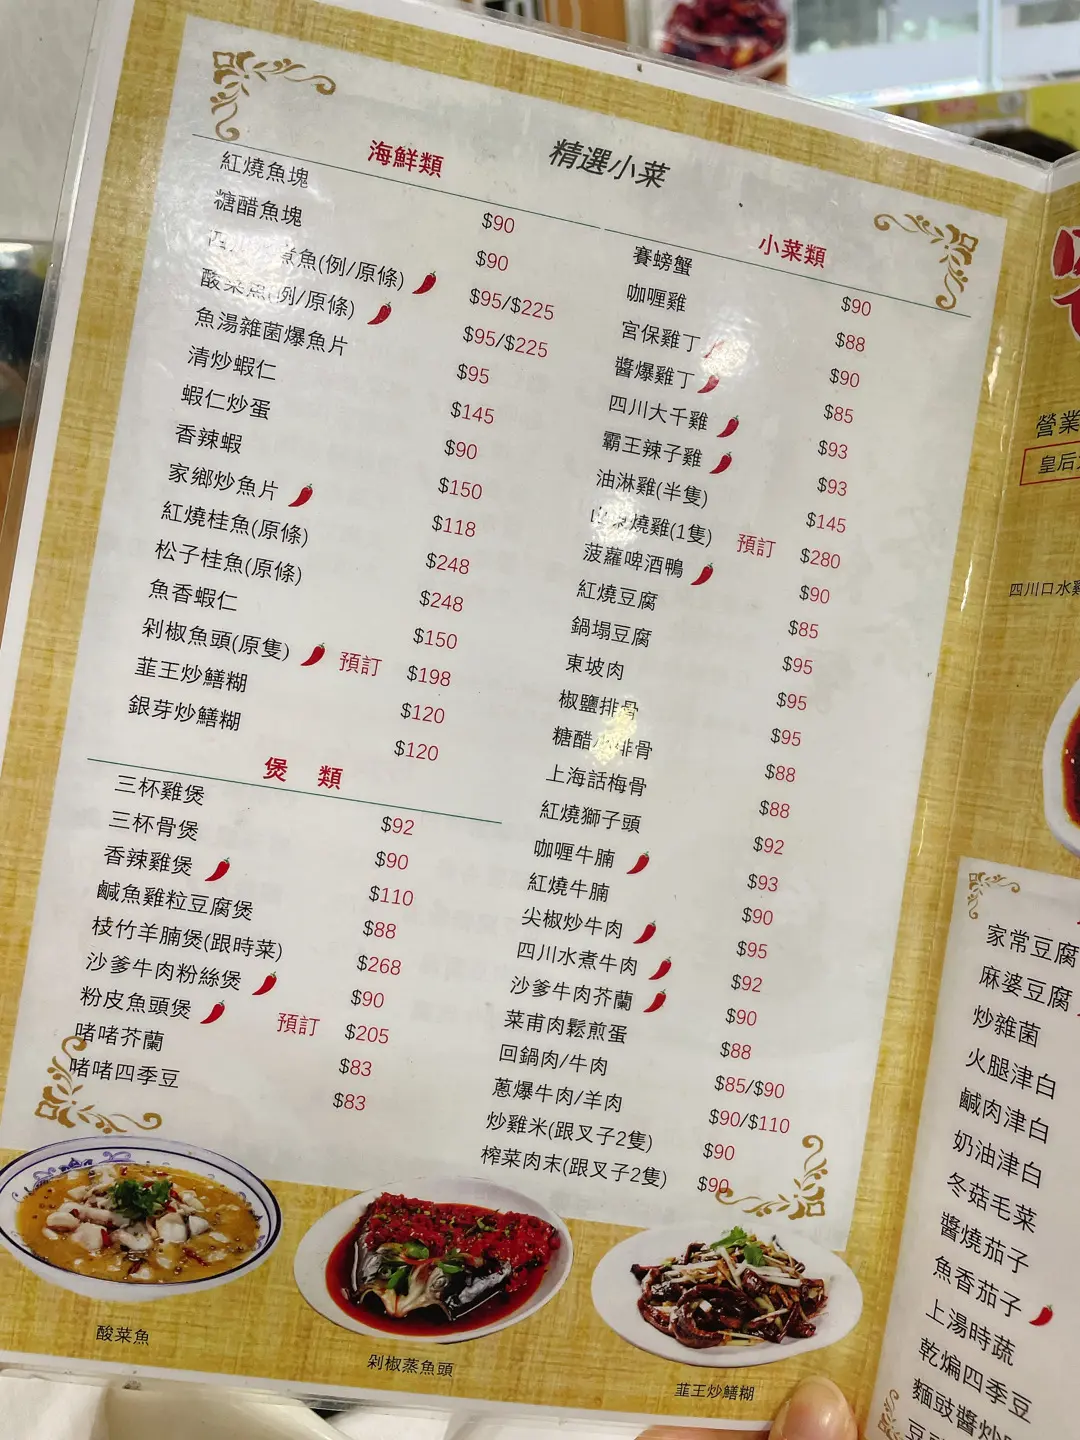 精選小菜
海鮮類
紅燒魚塊 $90
糖醋魚塊 $90
四川 煮魚(例/原條) $95/$225
酸菜魚(例/原條) $95/$225
魚湯雜菌爆魚片 $95
清炒蝦仁 $145
蝦仁炒蛋 $90
香辣蝦 $150
家鄉炒魚片 $118
紅燒桂魚(原條) $248
松子桂魚(原條) $248
魚香蝦仁 $150
剁椒魚頭(原隻) 預訂 $198
韮王炒鱔糊 $120
銀芽炒鱔糊 $120
煲 類
三杯雞煲 $92
三杯骨煲 $90
香辣雞煲 $110
鹹魚雞粒豆腐煲 $88
枝竹羊腩煲(跟時菜) $268
沙爹牛肉粉絲煲 $90
粉皮魚頭煲 預訂 $205
啫啫芥蘭 $83
啫啫四季豆 $83
小菜類
賽螃蟹 $90
咖喱雞 $88
宮保雞丁 $90
醬爆雞丁 $85
四川大千雞 $93
霸王辣子雞 $93
油淋雞(半隻) $145
燒雞(1隻) 預訂 $280
菠蘿啤酒鴨 $90
紅燒豆腐 $85
鍋塌豆腐 $95
東坡肉 $95
椒鹽排骨 $95
糖醋 排骨 $88
上海話梅骨 $88
紅燒獅子頭 $92
咖喱牛腩 $93
紅燒牛腩 $90
尖椒炒牛肉 $95
四川水煮牛肉 $92
沙爹牛肉芥蘭 $90
菜甫肉鬆煎蛋 $88
回鍋肉/牛肉 $85/$90
蔥爆牛肉/羊肉 $90/$110
炒雞米(跟叉子2隻) $90
榨菜肉末(跟叉子2隻) $90
酸菜魚
剁椒蒸魚頭
韮王炒鱔糊
營業
皇后
四川口水雞
家常豆腐
麻婆豆腐
炒雜菌
火腿津白
鹹肉津白
奶油津白
冬菇毛菜
醬燒茄子
魚香茄子
上湯時蔬
乾煸四季豆
麵豉醬炒